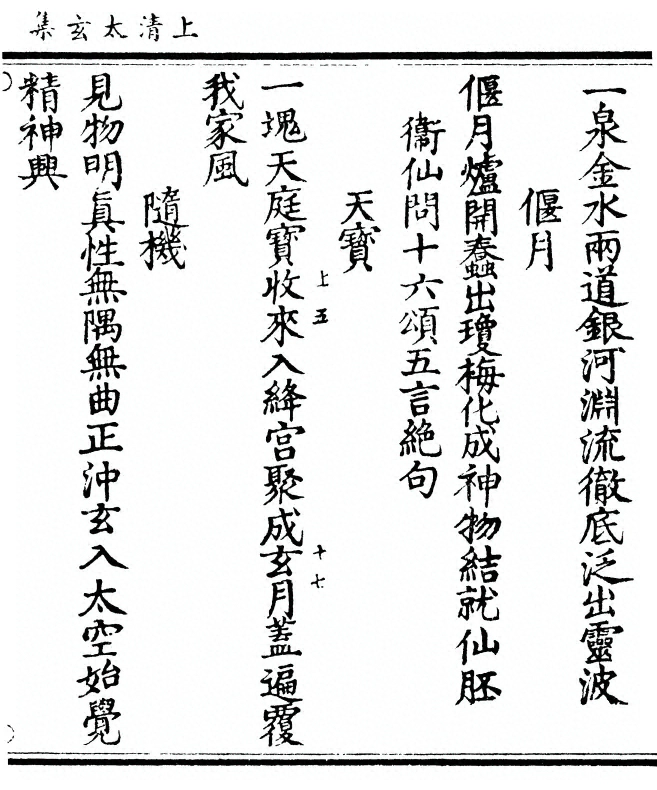 上清太玄集
一泉金水兩道銀河淵流徹底泛出靈波
偃月
偃月爐開蠢出瓊梅化成神物結就仙胚
衞仙問十六頌五言絶句
天寶
上五
十七
一塊天庭寶收來入絳宮聚成玄月蓋遍覆
我家風
隨機
見物明真性無隅無曲正沖玄入太空始覺
精神興